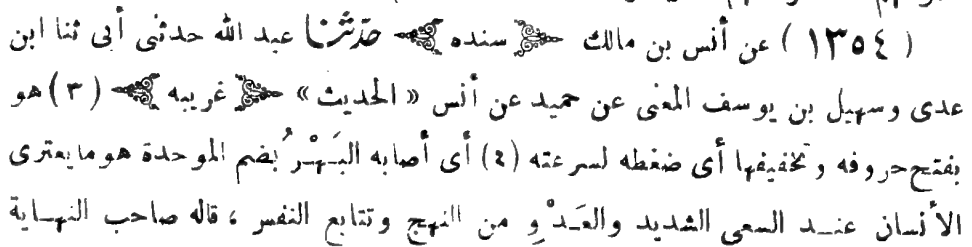 ( ١٣٥٤ ) عن أنس بن مالك ﴿ سنده ﴾ حدّثنا عبد الله حدثني أبى ثنا ابن
عدى وسهيل بن يوسف المعنى عن حميد عن أنس « الحديث » ﴿ غريبه ﴾ ( ٣ ) هو
بفتح حروفه وتخفيفها أى ضغطه لسرعته (٤) أى أصابه البَهْرُ بضم الموحدة هو ما يعترى
الأنسان عند السعى الشديد والعَدْوِ من النهج وتتابع النفس ، قاله صاحب النهاية